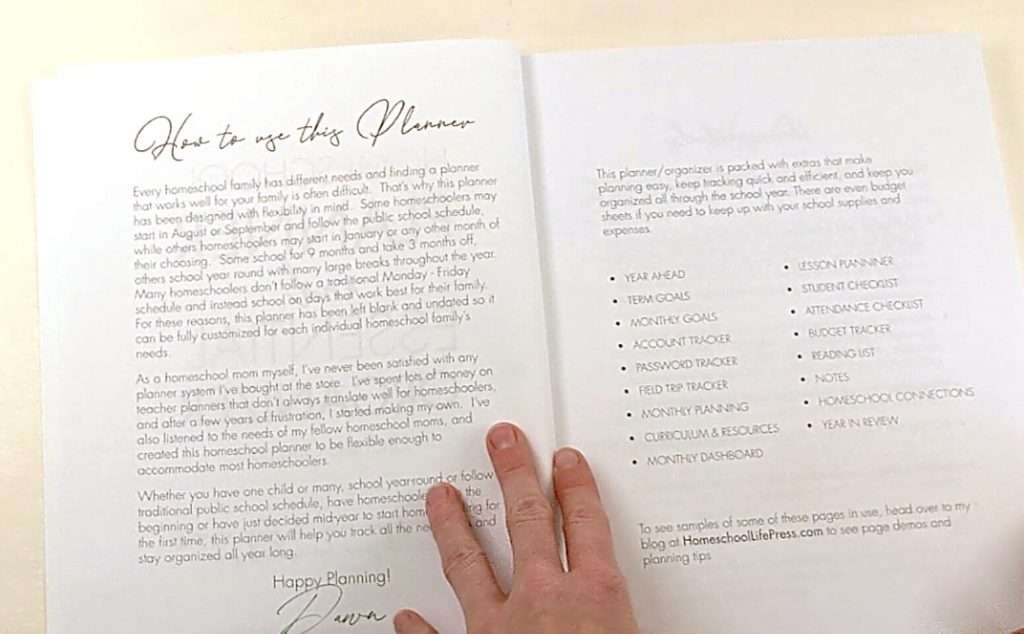 How to use this Planner
Every homeschool family has different needs and finding a planner
that works well for your family is often difficult. That's why this planner
has been designed with flexibility in mind. Some homeschoolers may
start in August or September and follow the public school schedule,
while others homeschoolers may start in January or any other month of
their choosing. Some school for 9 months and take 3 months off,
others school year round with many large breaks throughout the year.
Many homeschoolers don't follow a traditional Monday - Friday
schedule and instead school on days that work best for their family.
For these reasons, this planner has been left blank and undated so it
can be fully customized for each individual homeschool family's
needs.
As a homeschool mom myself, I've never been satisfied with any
planner system I've bought at the store. I've spent lots of money on
teacher planners that don't always translate well for homeschoolers,
and after a few years of frustration, I started making my own. I've
also listened to the needs of my fellow homeschool moms, and
created this homeschool planner to be flexible enough to
accommodate most homeschoolers.
Whether you have one child or many, school year-round or follow
traditional public school schedule, have homeschoole the
beginning or have just decided mid-year to start home ng for
the first time, this planner will help you track all the ne and
stay organized all year long.
Happy Planning!
Dawn
This planner/organizer is packed with extras that make
planning easy, keep tracking quick and efficient, and keep you
organized all through the school year. There are even budget
sheets if you need to keep up with your school supplies and
expenses.
• YEAR AHEAD
• TERM GOALS
• MONTHLY GOALS
• ACCOUNT TRACKER
• PASSWORD TRACKER
• FIELD TRIP TRACKER
• MONTHLY PLANNING
• CURRICULUM & RESOURCES
• MONTHLY DASHBOARD
• LESSON PLANNINER
• STUDENT CHECKLIST
• ATTENDANCE CHECKLIST
• BUDGET TRACKER
• READING LIST
• NOTES
• HOMESCHOOL CONNECTIONS
• YEAR IN REVIEW
To see samples of some of these pages in use, head over to my
blog at HomeschoolLifePress.com to see page demos and
planning tips